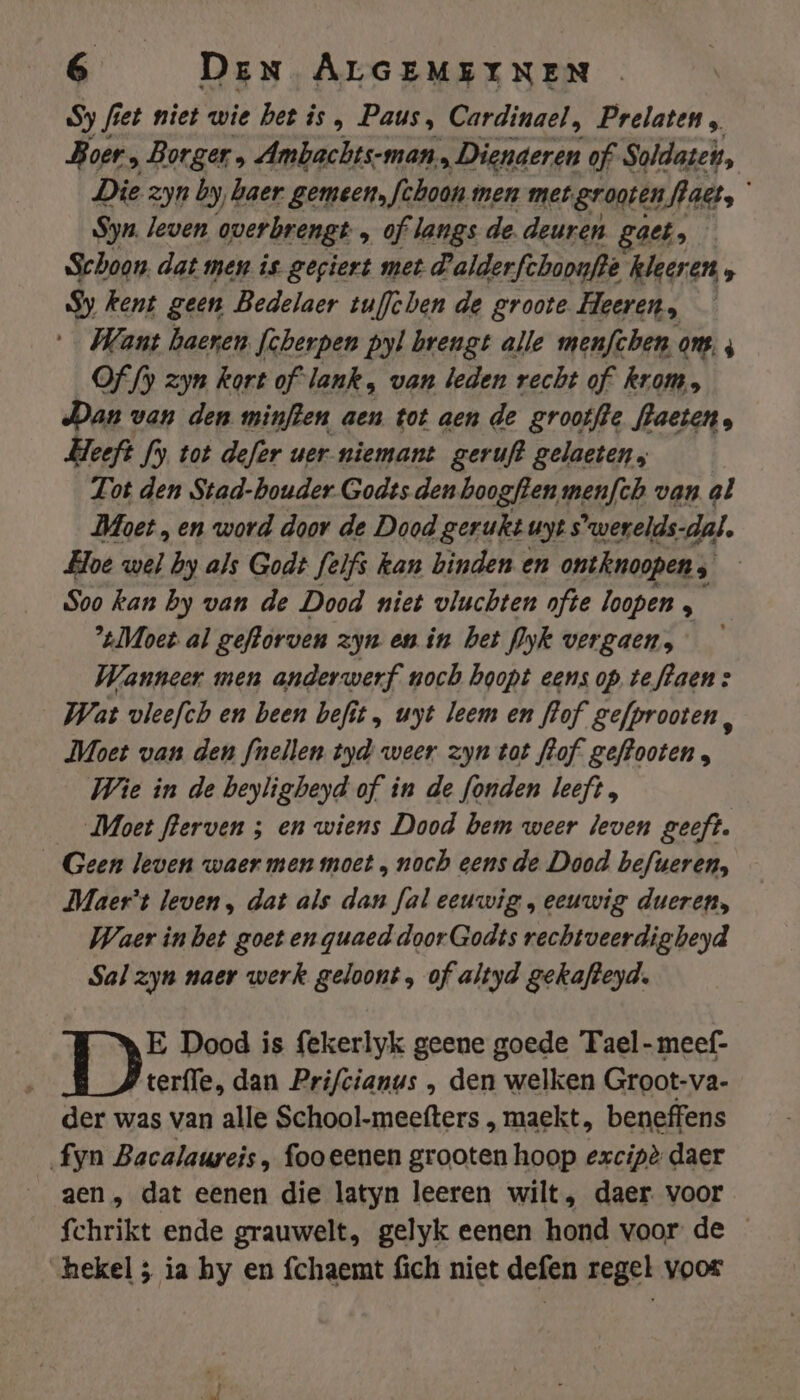 6 DEN ALGEMEYNEN
Sy ſiet niet wie het is, Paus, Cardinael, Prelaten,
Boer, Borger, Ambachts-man, Dienaeren of Soldaten,
Die zyn by haer gemeen, ſchoon men met grooten ſtaet,
Syn leven overbrengt, of langs de deuren gaet,
Schoon dat men is geçiert met d'alderſchoonſte kleeren,
Sy kent geen Bedelaer tuſſchen de groote Heeren,
Want haeren ſcherpen pyl brengt alle menſchen om,
Of ſy zyn kort of lank, van leden recht of krom,
Dan van den minſten aen tot aen de grootſte ſtaeten,
Heeft ſy tot deſer uer niemant geruſt gelaeten,
Tot den Stad-houder Godts den hoogſten menſch van al
Moet, en word door de Dood gerukt uyt s'werelds-dal.
Hoe wel hy als Godt ſelfs kan binden en ontknoopen,
Soo kan hy van de Dood niet vluchten ofte loopen,
'tMoet al geſtorven zyn en in het ſlyk vergaen,
Wanneer men anderwerf noch hoopt eens op te ſtaen:
Wat vleeſch en been beſit, uyt leem en ſtof geſprooten,
Moet van den ſnellen tyd weer zyn tot ſtof geſtooten,
Wie in de heyligheyd of in de ſonden leeft,
Moet ſterven; en wiens Dood hem weer leven geeft.
Geen leven waer men moet, noch eens de Dood beſueren,
Maer't leven, dat als dan ſal eeuwig, eeuwig dueren,
Waer in het goet en quaed door Godts rechtveerdigheyd
Sal zyn naer werk geloont, of altyd gekaſteyd.
DE Dood is ſekerlyk geene goede Tael-meeſ-
terſſe, dan Priſcianus, den welken Groot-va-
der was van alle School-meeſters, maekt, beneffens
ſyn Bacalaureis, ſoo eenen grooten hoop excipè daer
aen, dat eenen die latyn leeren wilt, daer voor
ſchrikt ende grauwelt, gelyk eenen hond voor de
hekel; ia hy en ſchaemt ſich niet deſen regel voor